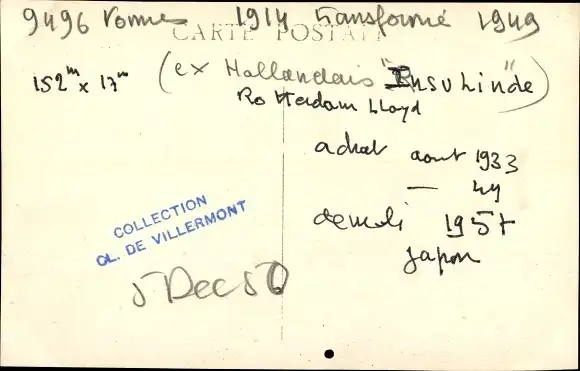 9496 tonnes 1914 transformé 1949
CARTE POSTALE
152m x 17m (ex Hollandais "Insulinde")
Rotterdam Lloyd
achat aout 1933
— 49
demoli 1957
Japon
COLLECTION
OL. DE VILLERMONT
5 Dec 50